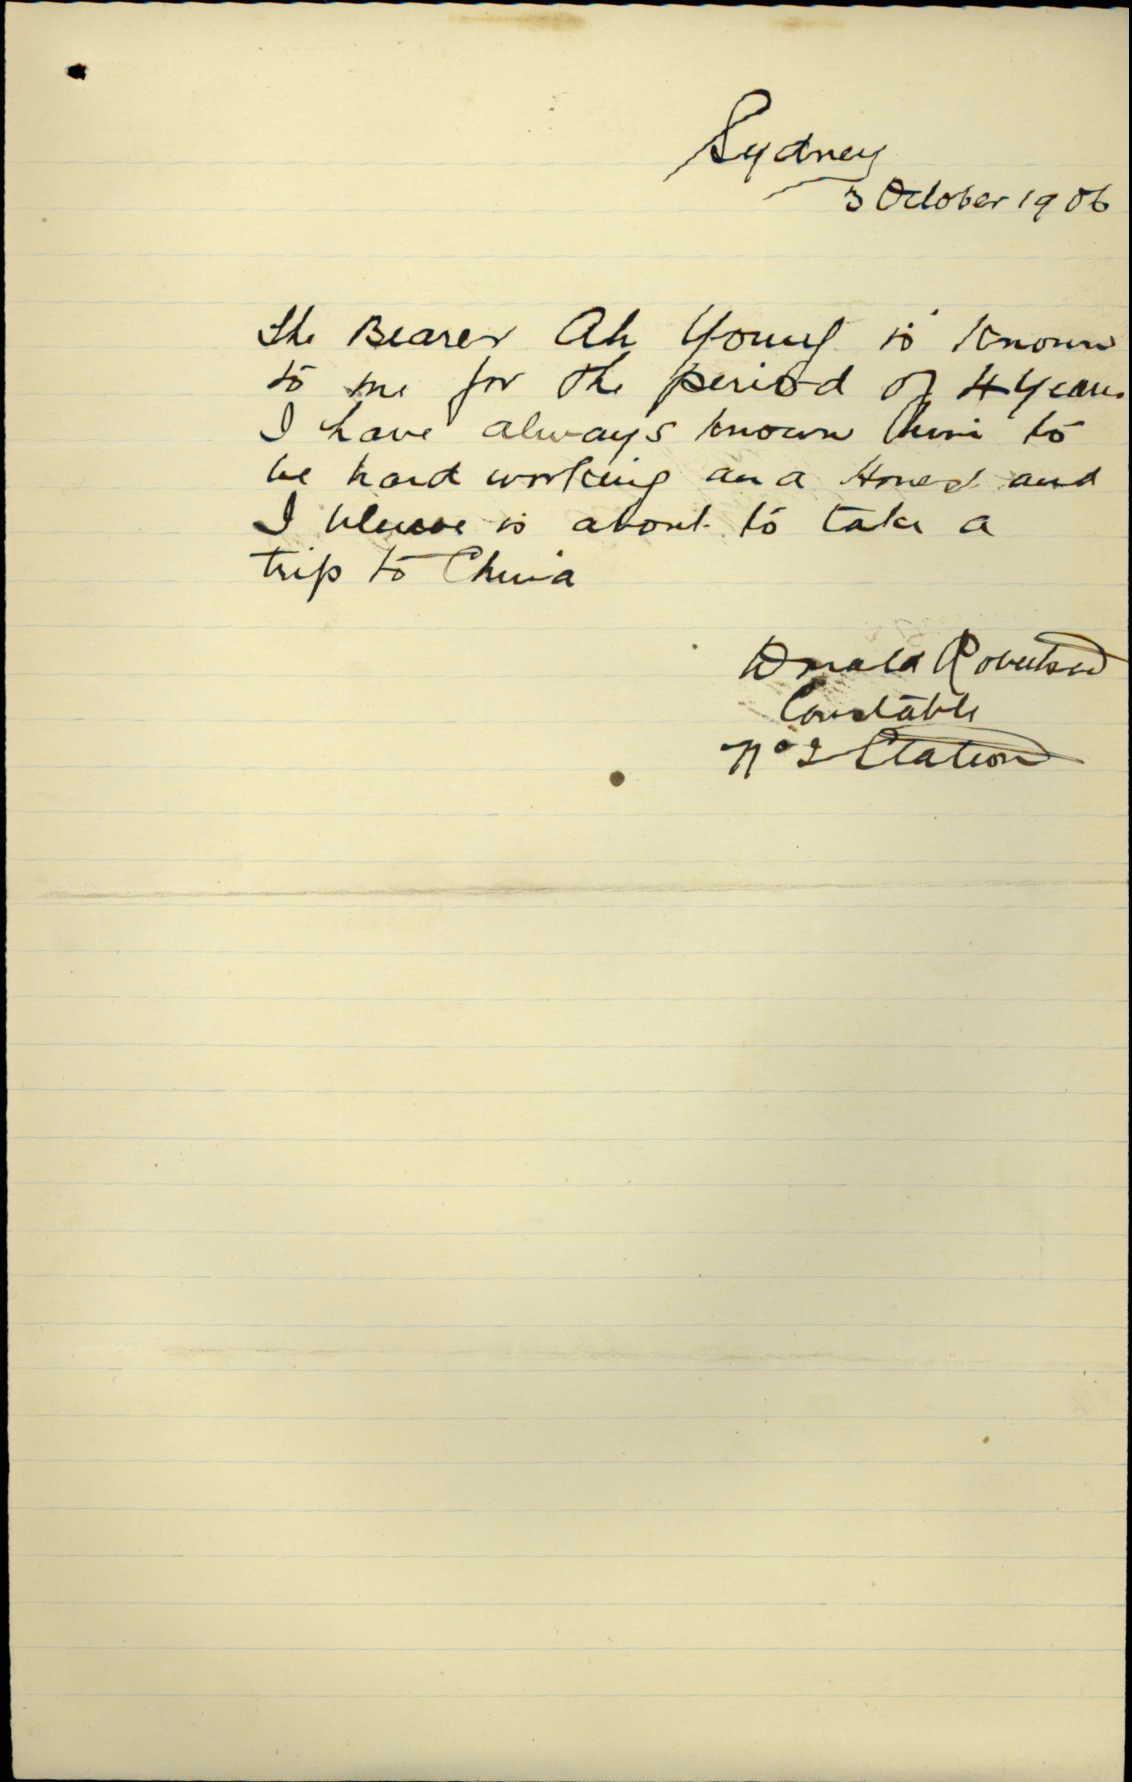 Sydney
3 October 1906
The Bearer Ah Young is known
to me for the period of 4 years
I have always known him to
be hard working and Honest and
I believe is about to take a
trip to China
Donald Robertson
Constable
No 2 Station